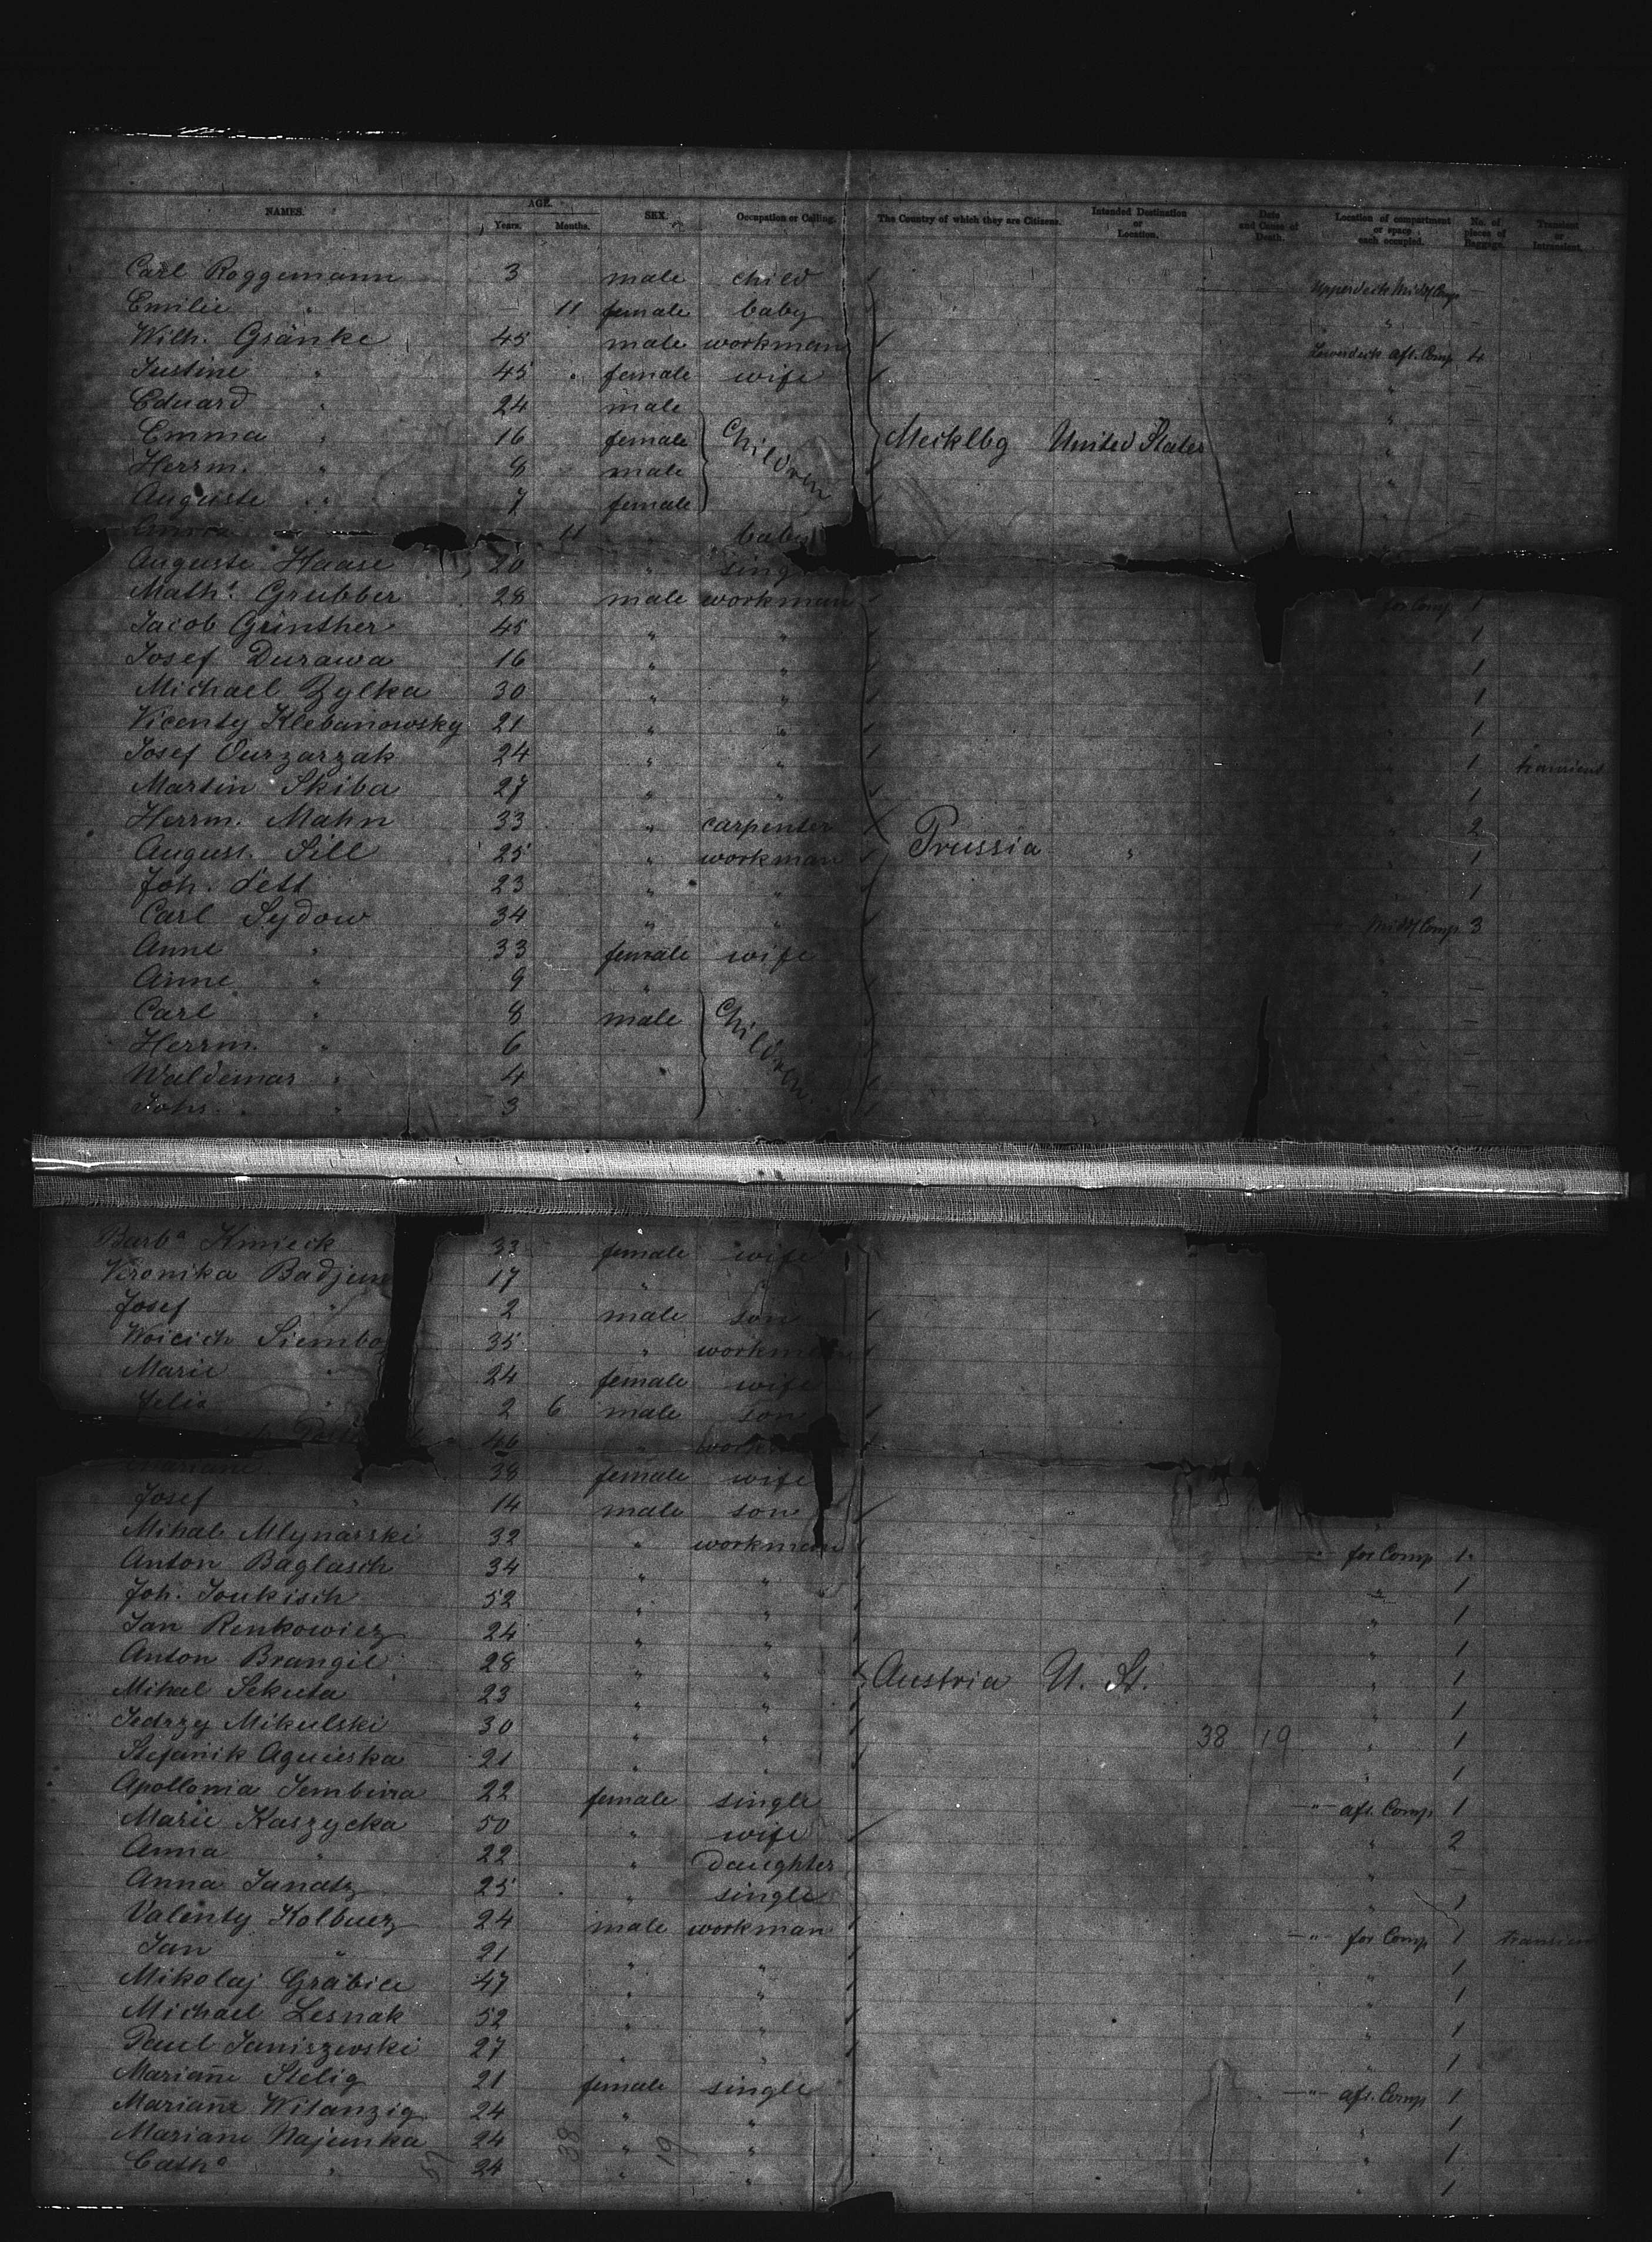 NAMES. AGE. Years. Months. SEX. Occupation or Calling. The Country of which they are Citizens. Intended Destination or Location. Date and Cause of Death. Location of compartment or space each occupied. No. of pieces of Baggage. Transient or Intransient.
Carl Roggemann 3 male child Upperdeck Midd Comp —
Emilie " — 11 female baby " —
Wilh. Gränke 45 male workman Lowerdeck aft. Comp 4
Justine " 45 female wife " —
Eduard " 24 male " —
Emma " 16 female Children Mecklbg United States " —
Herrm. " 8 male " —
Auguste " 7 female " —
11 baby
Auguste Haase 20 "
Math. Grubber 28 male workman for Comp 1
Jacob Günther 45 " " 1
Josef Durawa 16 " " 1
Michael Zylka 30 " " 1
Vicenty Klebanowsky 21 " " 1
Josef Ourzarzak 24 " " 1 transient
Martin Skiba 27 " " 1
Herrm. Mahn 33 " carpenter 2
August. Sill 25 " workman Prussia " 1
Joh. Sett 23 " " 1
Carl Sydow 34 " " " Midd Comp 3
Anne " 33 female wife " —
Anne " 9 " " —
Carl " 8 male Children " —
Herrm. " 6 " —
Waldemar " 4 " —
Johs. " 3 —
Barba Kmieck 33 female wife
Veronika 17 " "
Josef " 2 male son
Woicich 35 " workman
Marie " 24 female wife
Felix " 2 6 male son
46 "
38 female wife
Josef " 14 male son "
Mihal Mlynarski 32 " workman " for Comp 1
Anton Baglasch 34 " " " 1
Joh. Joukisch 52 " " " 1
Jan Renkowicz 24 " " " 1
Anton Brangil 28 " " Austria U. St. " 1
Mihal Sekuta 23 " " " 1
Jedrzy Mikulski 30 " " 38 19 " 1
Stefanik Agnieska 21 " " " 1
Apollonia Sembira 22 female single " aft. Comp 1
Marie Kaszycka 50 " wife " 2
Anna " 22 " daughter " —
Anna Janatz 25 " single " 1
Valenty Kolbuez 24 male workman " for Comp 1
Jan " 21 " " " 1
Mikolaj Grabiec 47 " " " 1
Michael Lesnak 52 " " " 1
Paul Janiszewski 27 " " " 1
Mariane Stelig 21 female single " aft. Comp 1
Mariane Witanzig 24 " " " 1
Mariane Najemka 24 " " " 1
Catha " 24 " " " 1
38 19